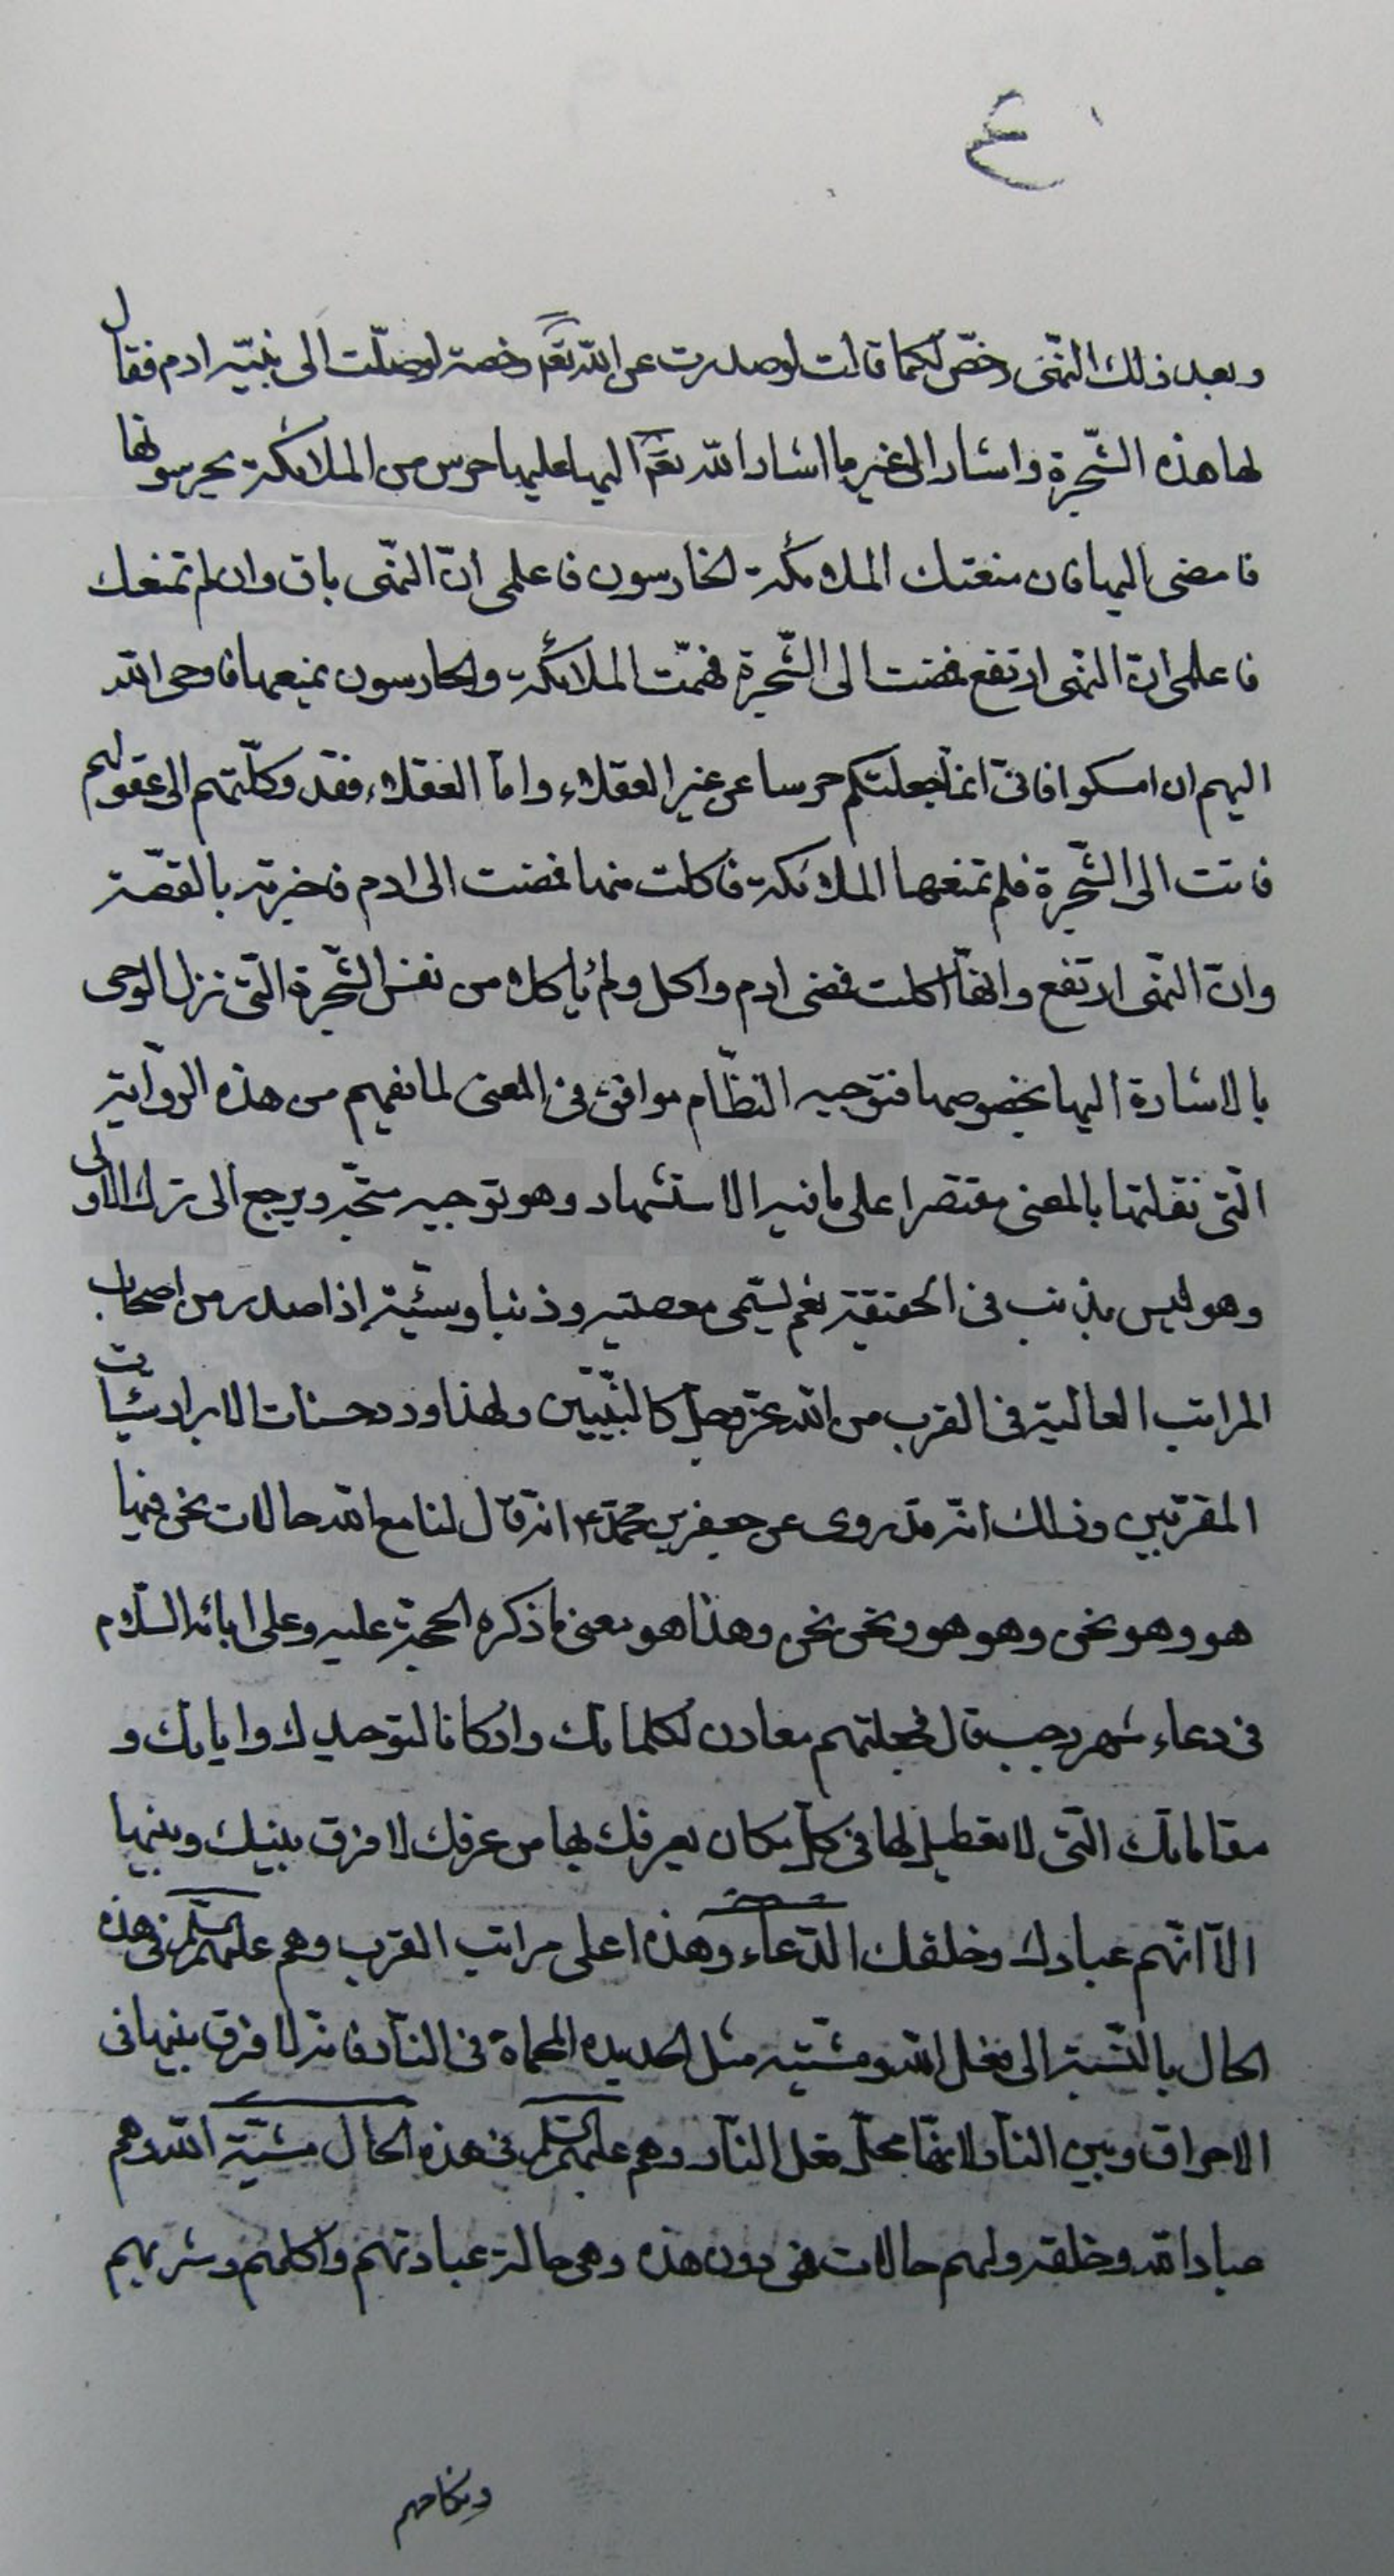 ع
وبعد ذلك النّهى رخّص لكما قالت لو صدرت عن الله تعٰم رخصة لوصلت الى نبيّه ادم فقال
لها هذه الشّجرة واشار الى غير ما اشار الله تعٰم اليها عليها حرس من الملائكة يحرسونها
فامضى اليها فان منعتك الملائكة الحارسون فاعلمى انّ النّهى باق وان لم تمنعك
فاعلمى انّ النّهى ارتفع فمضت الى الشّجرة فهمّت الملائكة والحارسون بمنعها فاوحى الله
اليهم ان امسكوا فانّى انما جعلتكم حرسا عن غير العقلاء واما العقلاء فقد وكّلتهم الى عقولهم
فاتت الى الشّجرة فلم تمنعها الملائكة فاكلت منها فمضت الى ادم فاخبرته بالقصّة
وانّ النّهى ارتفع وانّها اكلت فمضى ادم واكل ولم يأكلا من نفس الشّجرة الّتى نزل الوحى
بالاشارة اليها بخصوصها فتوجيه النظّام موافق فى المعنى لما نفهم من هذه الرّواية
الّتى نقلتها بالمعنى مقتصرا على ما فيه الاستشهاد وهو توجيه متّجه ويرجع الى ترك الاولى
وهو ليس بذنب فى الحقيقة نعم يسمّى معصية وذنبا وسيّئة اذا صدر من اصحاب
المراتب العالية فى القرب من الله عزّ وجلّ كالنّبيّين ولهذا ورد حسنات الابرار سيّئات
المقرّبين وذلك انّه قد روى عن جعفر بن محمّد ع انّه قال لنا مع الله حالات نحن فيها
هو وهو نحن وهو هو ونحن نحن وهذا هو معنى ما ذكره الحجّة عليه وعلى ابائه السّلام
فى دعاء شهر رجب قال فجعلتهم معادن لكلماتك واركانا لتوحيدك واياتك و
مقاماتك الّتى لا تعطيل لها فى كلّ مكان يعرفك بها من عرفك لا فرق بينك وبينها
الّا انّهم عبادك وخلقك الدّعاء وهذه اعلى مراتب القرب وهم عليهم السّلم فى هذه
الحال بالنّسبة الى فعل الله ومشيّته مثل الحديدة المحماة فى النّار فانّه لا فرق بينها فى
الاحراق وبين النّار لانّها محلّ فعل النّار وهم عليهم السّلم فى هذه الحال محل مشيّة الله وهم
عباد الله وخلقه ولهم حالات هى دون هذه وهى حالة عبادتهم واكلهم وشربهم
ونكاحهم